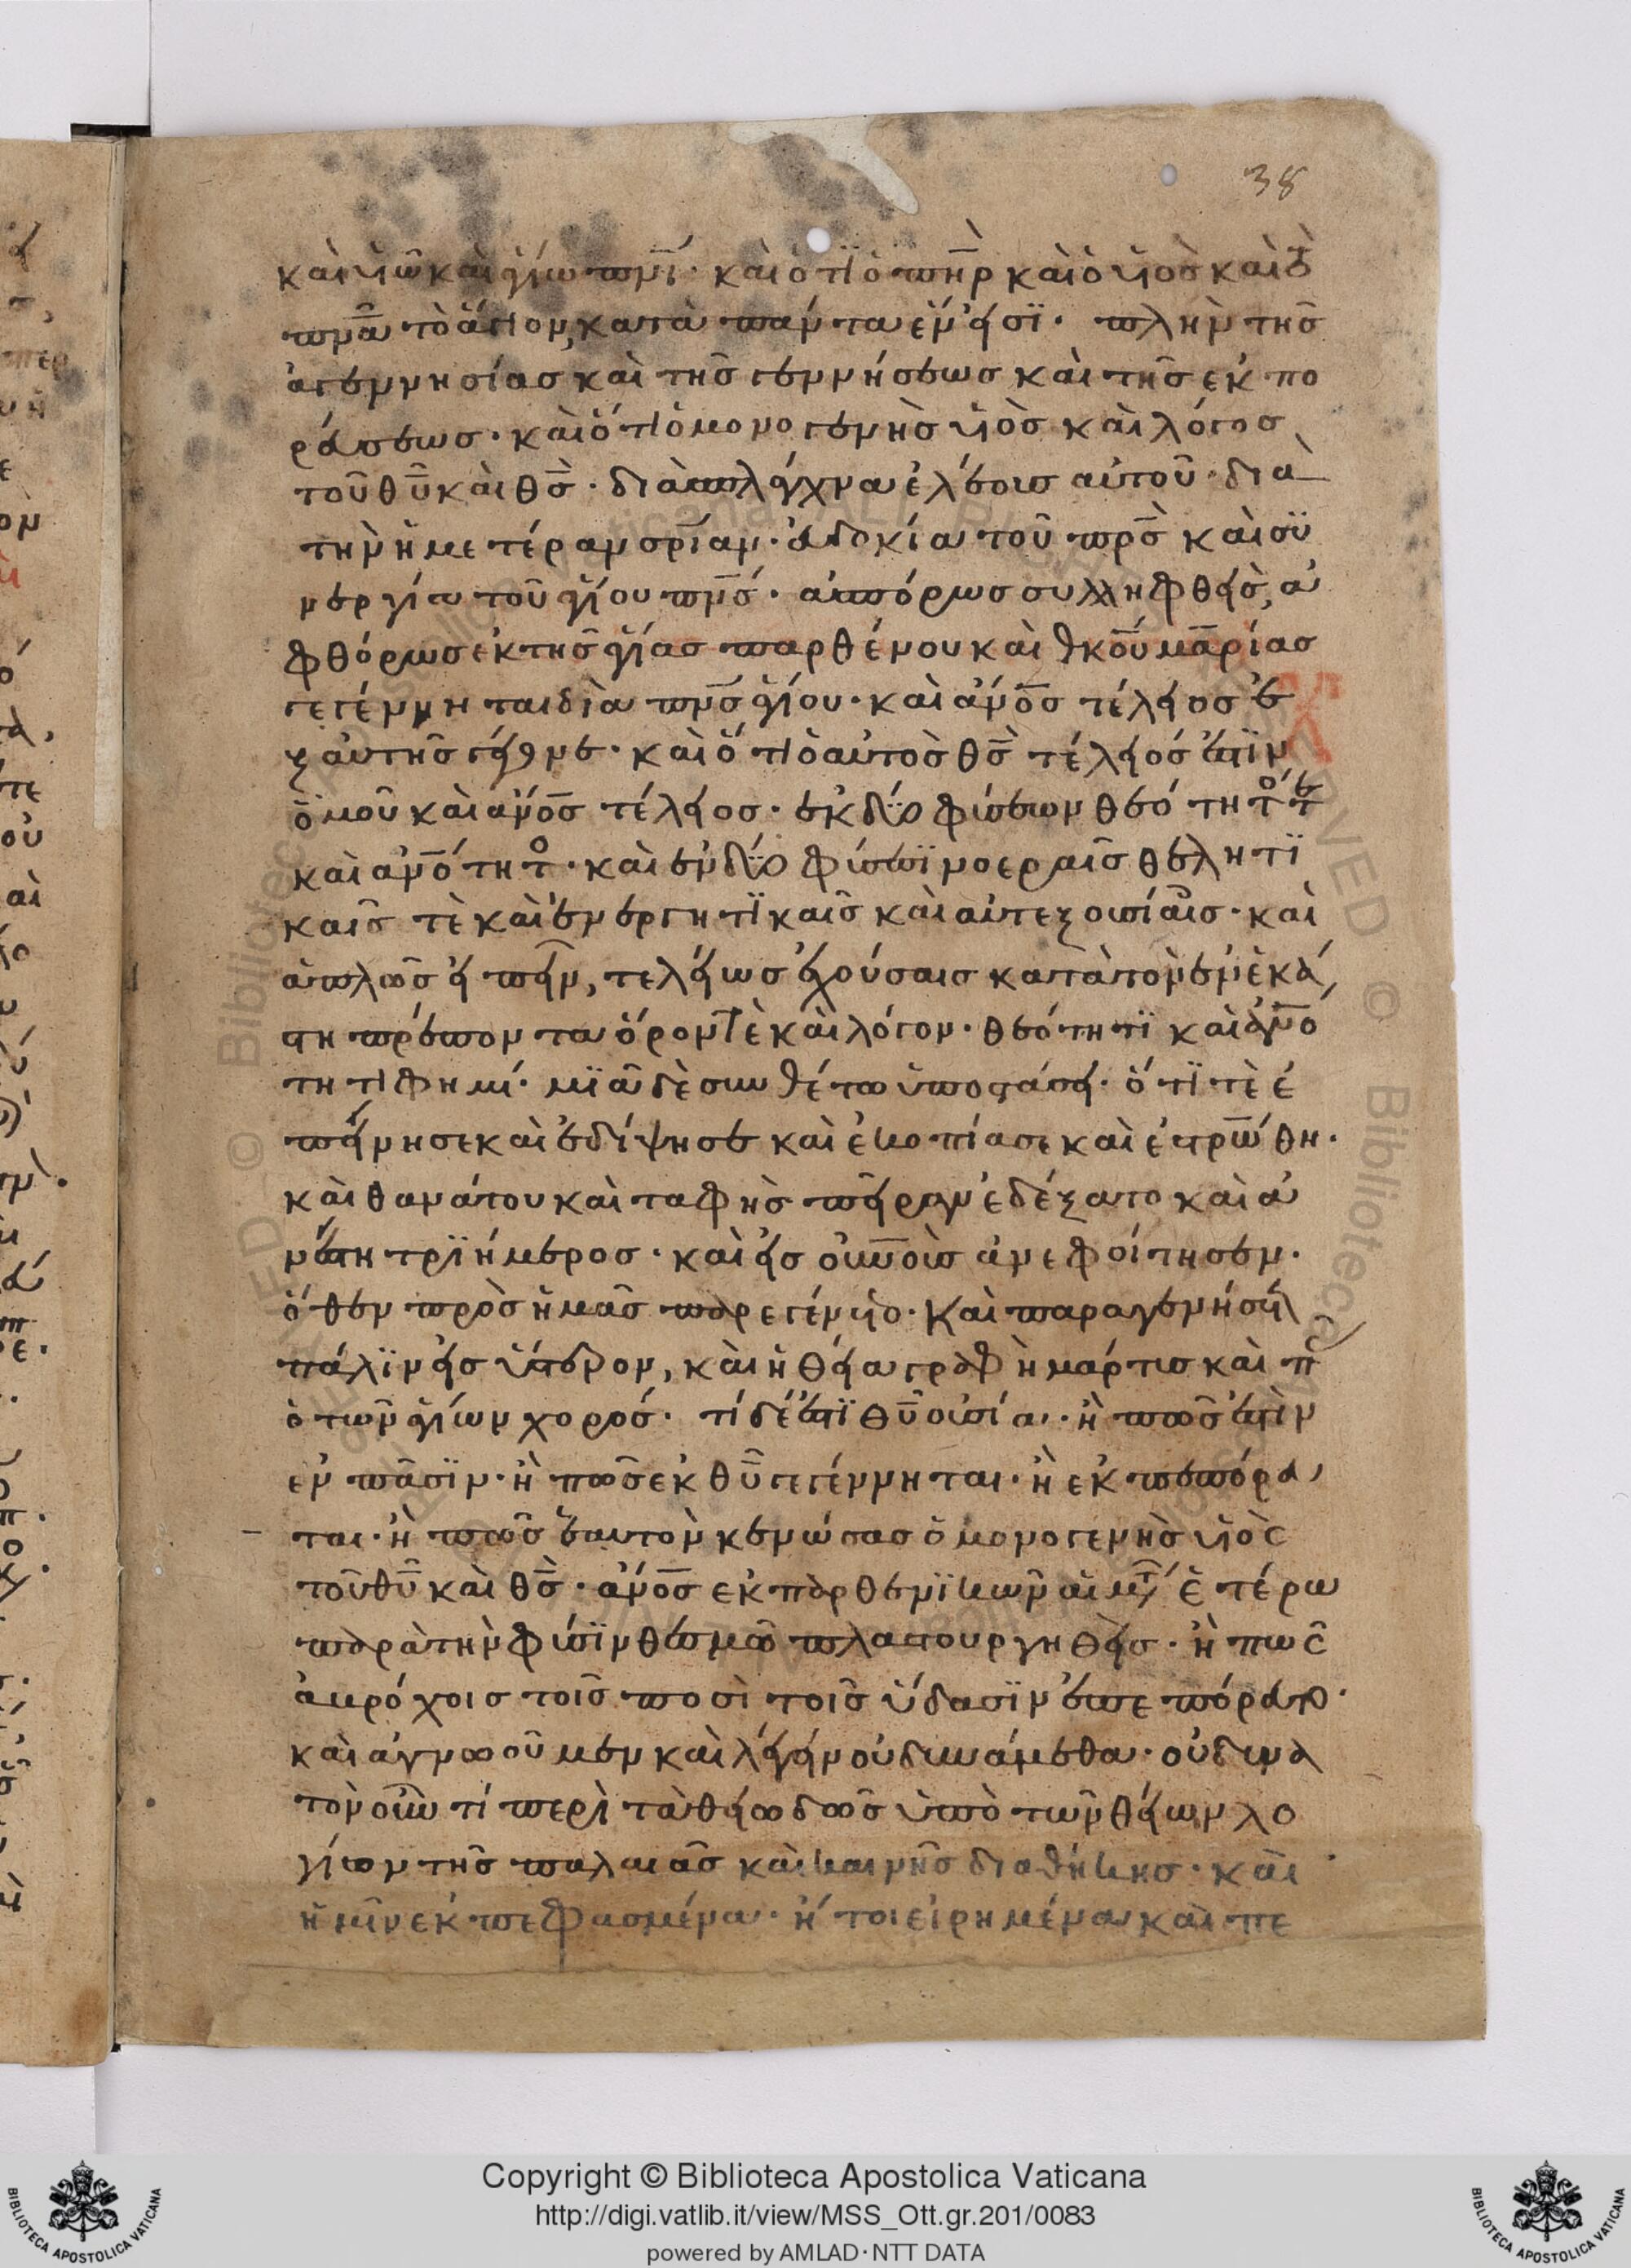 38
καὶ υἱῶ καὶ ἁγίω πνι· καὶ ὅτι ὁ πηρ καὶ ὁ υἱὸσ καὶ τὸ
πνα τὸ ἅγιον, κατὰ πάντα ἕν εἰσϊ· πλὴν τῆσ
ἀγεννησίασ καὶ τῆσ γεννήσεωσ καὶ τῆσ ἐκπο
ρεύσεωσ· καὶ ὅτι ὁ μονογενὴσ υἱὸσ καὶ λόγοσ
τοῦ θυ καὶ θσ· διὰ σπλάγχνα ἐλέουσ αὐτοῦ· διὰ
τὴν ἡμετέραν σρίαν· εὐδοκία τοῦ πρσ καὶ συ
νεργία τοῦ ἁγίου πνσ· ἀσπόρωσ συλληφθεὶσ, ἀ
φθόρωσ ἐκ τῆσ ἁγίασ παρθένου καὶ θκου μαρίασ
γεγέννηται διὰ πνσ ἁγίου· καὶ ἀνοσ τέλειοσ ἐ
ξ αὐτῆσ γέγονε· καὶ ὅτι ὁ αὐτὸσ θσ τέλειόσ ἐστϊν
ὁμοῦ καὶ ἀνοσ τέλειοσ· ἐκ δύο φύσεων θεότητό τε
καὶ ἀνότητο· καὶ ἐν δύο φύσεσϊ νοεραῖσ θελητϊ
καῖσ τὲ καὶ ἐνεργητϊκαῖσ καὶ αὐτεξουσίαισ· καὶ
ἁπλῶσ εἰπεῖν, τελείωσ ἐχούσαισ κατὰ τὸν ἐν ἑκά
στη πρέποντα ὅρον τὲ καὶ λόγον· θεότητϊ καὶ ἀνο
τητι φημί· μϊᾶ δὲ συνθέτω ὑποστάσει· ὅτϊ τὲ ἐ
πείνησε καὶ ἐδίψησε καὶ ἐκοπίασε καὶ ἐστρώθη·
καὶ θανάτου καὶ ταφῆσ πεῖραν ἐδέξατο καὶ ἀ
νέστη τρϊήμεροσ· καὶ εἰσ οὐνοὺσ ἀνεφοίτησεν·
ὅθεν πρὸσ ἡμᾶσ παρεγένετο· καὶ παραγενήσεται
πάλϊν εἰσ ὕστερον, καὶ ἡ θεία γραφὴ μάρτυσ καὶ πᾶσ
ὁ τῶν ἁγίων χορόσ· τί δέ ἐστϊ θυ οὐσία· ἢ πῶσ ἐστὶν
ἐν πᾶσϊν· ἢ πῶσ ἐκ θυ γεγέννηται· ἢ ἐκπεπόρευ
ται· ἢ πῶσ ἑαυτὸν κενώσασ ὁ μονογενὴσ υἱὸσ
τοῦ θυ καὶ θσ· ἀνοσ ἐκ παρθενϊκῶν αἱμάτων ἑτέρω
παρὰ τὴν φύσϊν θεσμῶ πλαστουργηθεὶσ· ἢ πῶσ
ἀβρόχοισ τοῖσ ποσὶ τοῖσ ὕδασϊν ἐπεπόρευτο·
καὶ ἀγνοοῦμεν καὶ λέγειν οὐ δυνάμεθα· οὐ δυνα
τὸν οὖν τί περὶ τὰ θειωδῶσ ὑπὸ τῶν θείων λο
γίων τῆσ παλαιᾶσ καὶ καινῆσ διαθήκησ· καὶ
ἡμῖν ἐκπεφασμένα· ἤτοι εἰρημένα καὶ πε
Copyright © Biblioteca Apostolica Vaticana
http://digi.vatlib.it/view/MSS_Ott.gr.201/0083
powered by AMLAD·NTT DATA
BIBLIOTECA APOSTOLICA VATICANA
BIBLIOTECA APOSTOLICA VATICANA